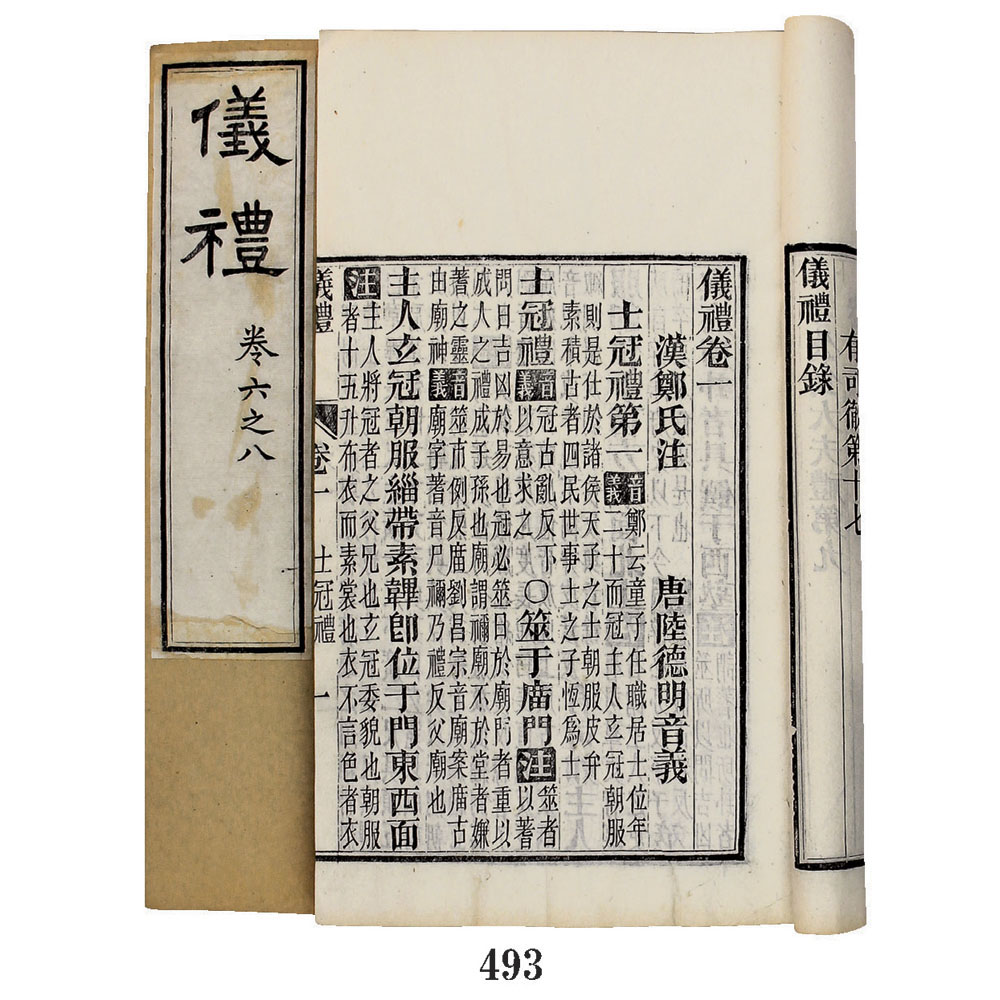 儀禮
卷六之八
儀禮目錄
有司徹第十七
儀禮卷一
漢鄭氏注 唐陸德明音義
士冠禮第一 音義 鄭云童子任職居士位年
二十而冠主人玄冠朝服
則是仕於諸侯天子之士朝服皮弁
素積古者四民世事士之子恆爲士
士冠禮 音義 冠古亂反下
以意求之 ○筮于廟門 注 筮者
以蓍
問日吉凶於易也冠必筮日於廟門者重以
成人之禮成子孫也廟謂禰廟不於堂者嫌
蓍之靈
由廟神 音義 筮市例反廣劉昌宗音廟案廣古
廟字蓍音尸禰乃禮反父廟也
主人玄冠朝服緇帶素韠卽位于門東西面
注 主人將冠者之父兄也玄冠委貌也朝服
者十五升布衣而素裳也衣不言色者衣
儀禮 卷一 士冠禮 一
493